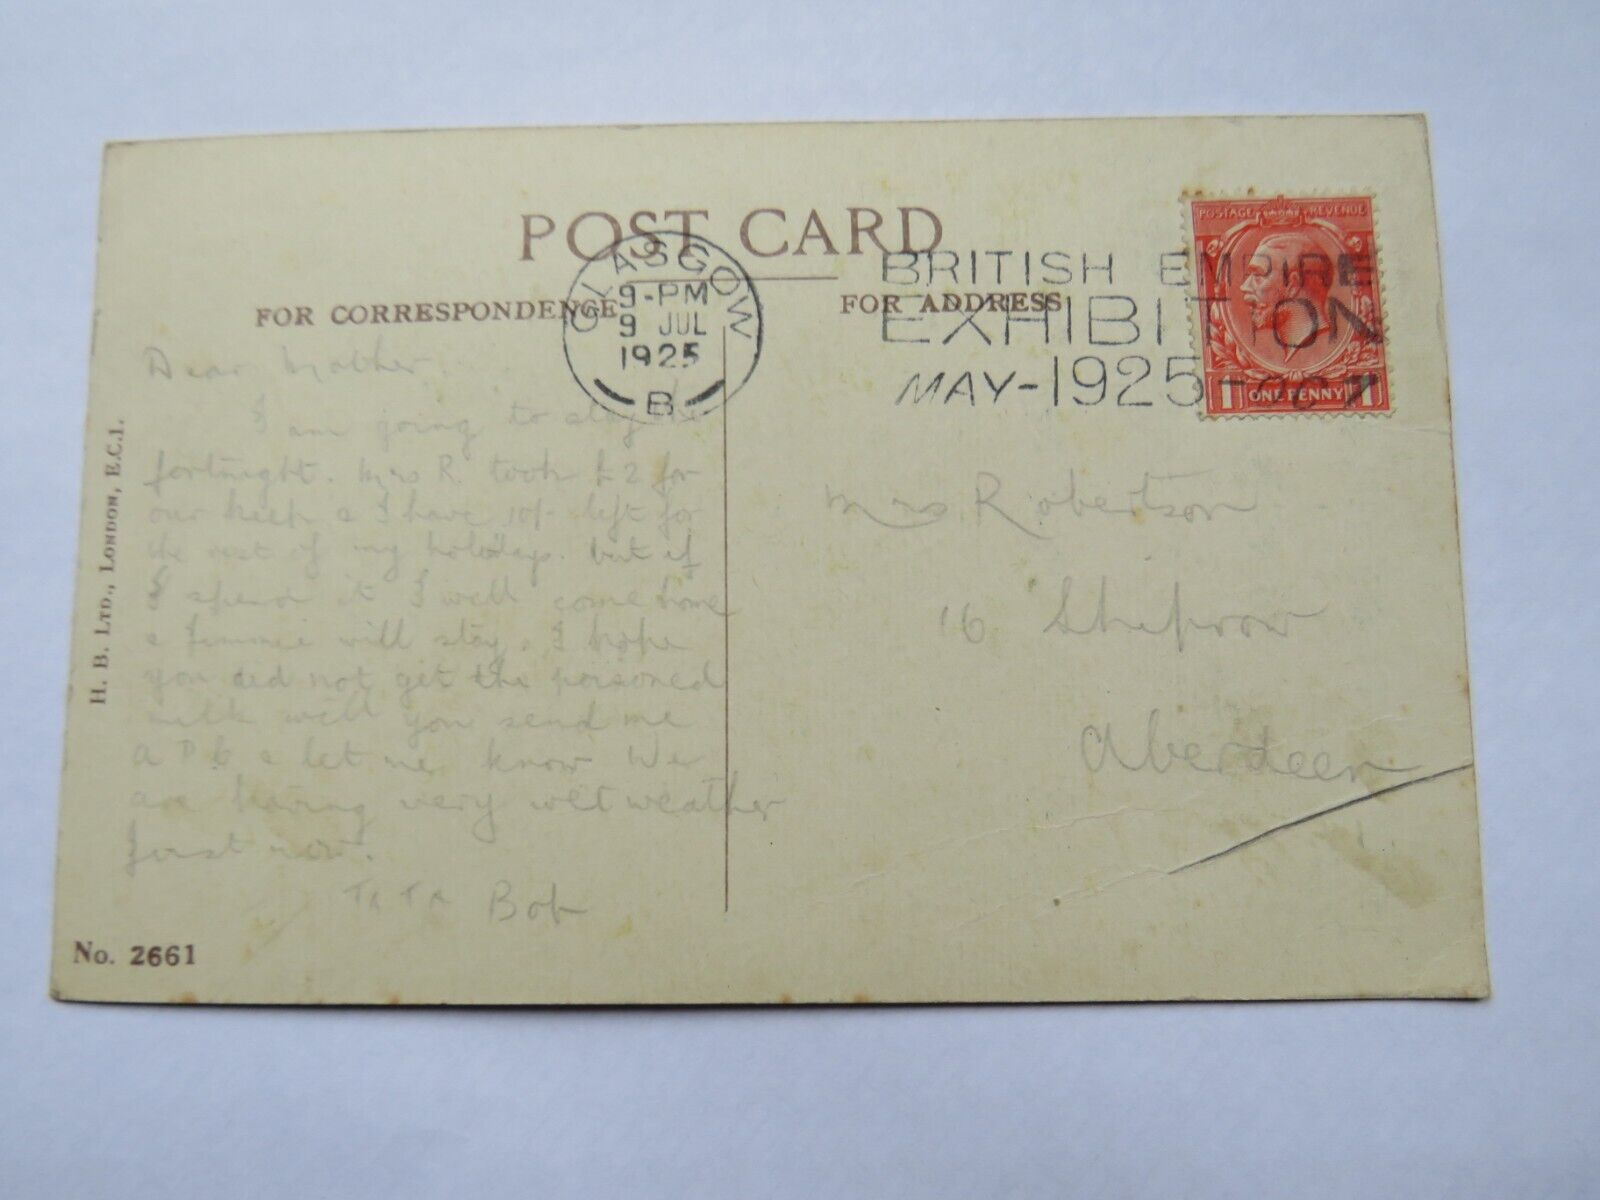 POST CARD
FOR CORRESPONDENCE
FOR ADDRESS
GLASGOW
9-PM
9 JUL
1925
B
BRITISH EMPIRE
EXHIBITION
MAY-1925-OCT
POSTAGE REVENUE
1 ONE PENNY 1
H. B. LTD., LONDON, E.C.1.
Dear Mother
I am going to stay the
fortnight. Mrs R. took £2 for
our keep & I have 10/- left for
the rest of my holidays. but if
I spend it I will come home
& Jimmie will stay. I hope
you did not get the poisoned
milk will you send me
a P C & let me know We
are having very wet weather
just now.
Ta Ta Bob
Mrs Robertson
16 Shiprow
Aberdeen
No. 2661